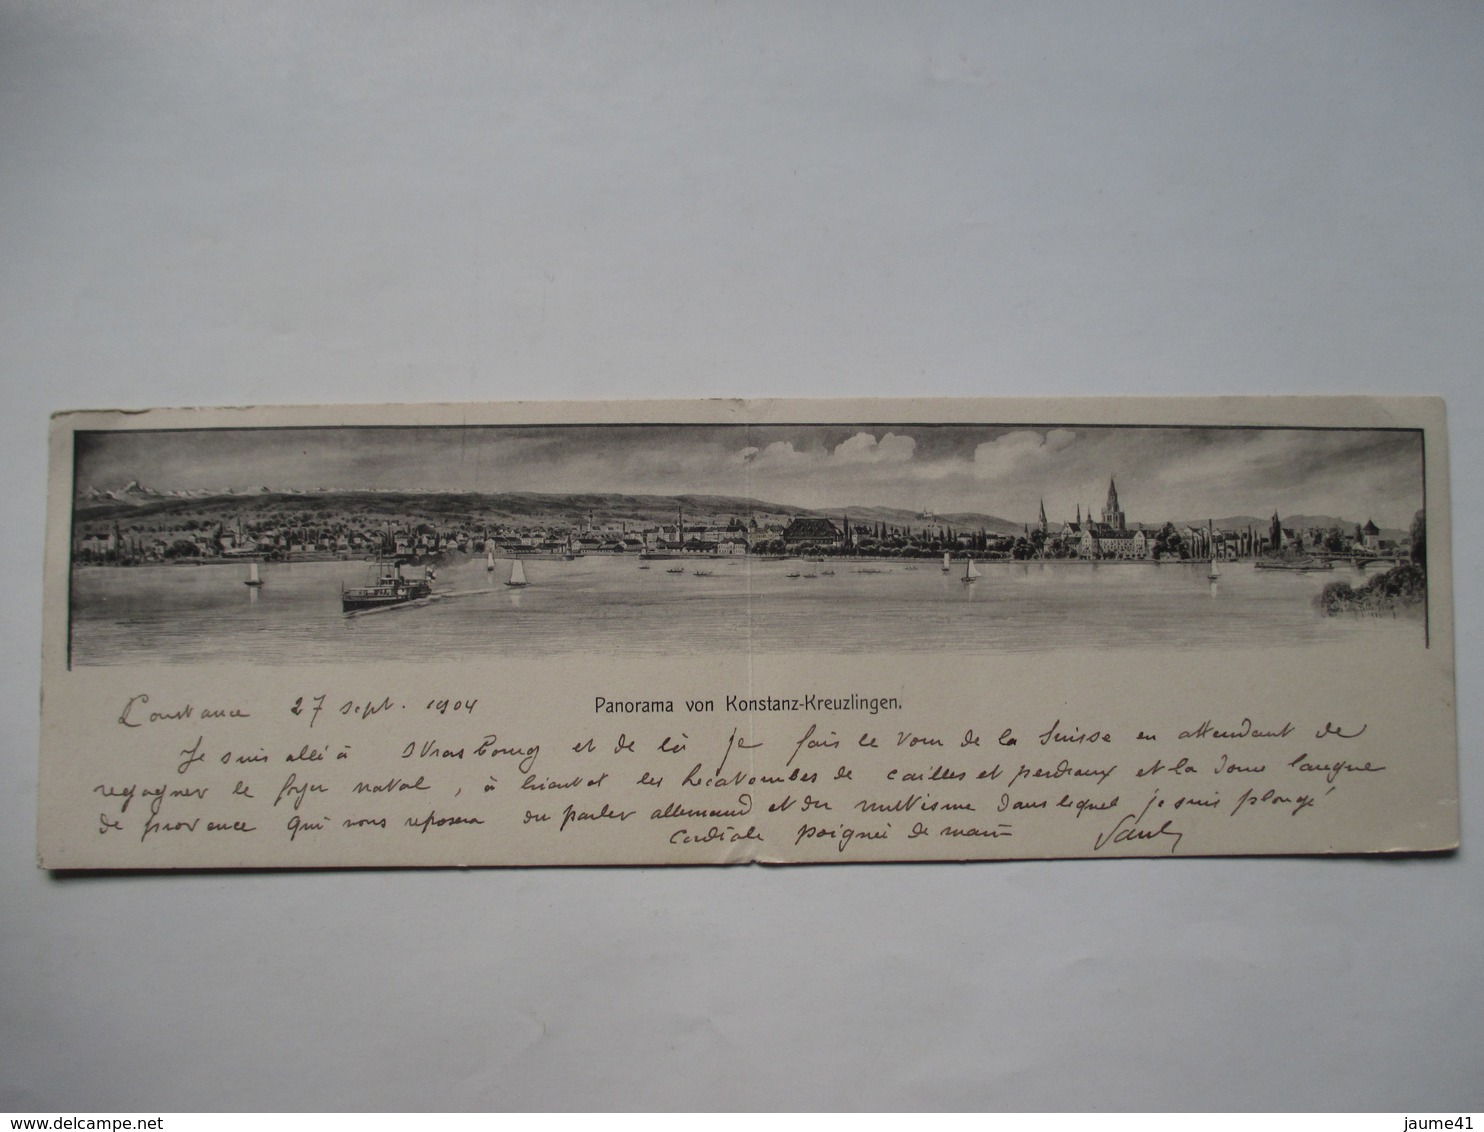 Constance 27 sept. 1904
Panorama von Konstanz-Kreuzlingen.
Je suis allé à Strasbourg et de là je fais le tour de la Suisse en attendant de
regagner le foyer natal, à les hécatombes de cailles et perdreaux et la douce langue
de provence qui nous reposera du parler allemand et du mutisme dans lequel je suis plongé
Cordiale poignée de main
jaume41
delcampe.net